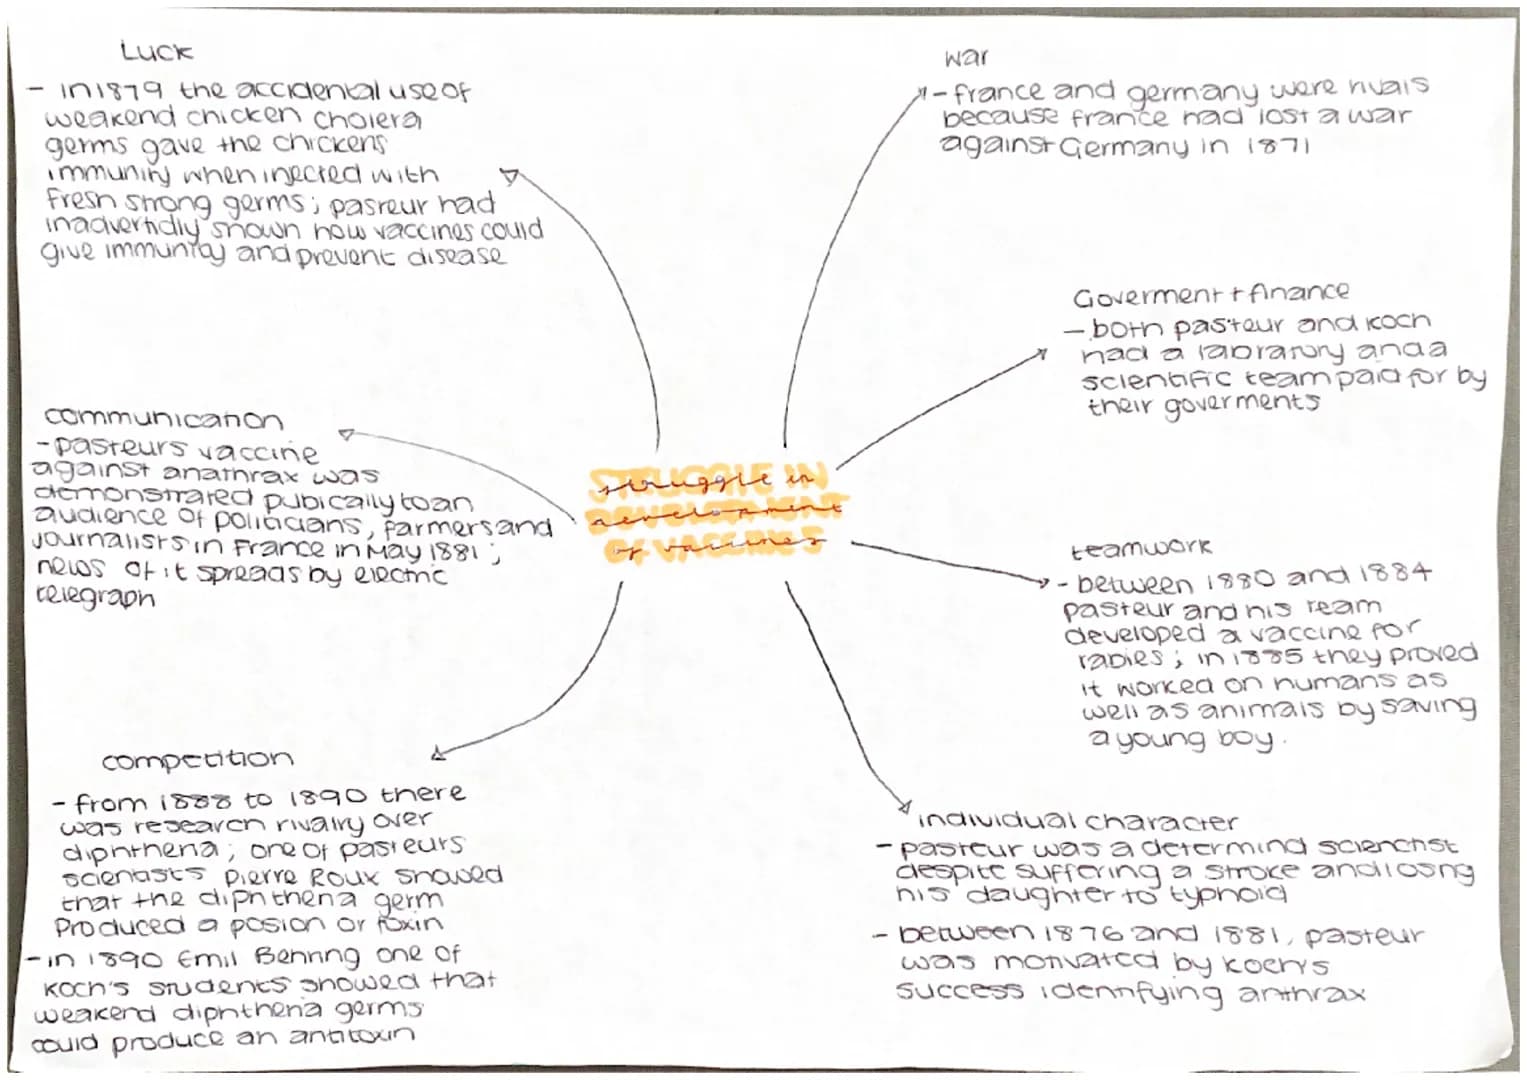 Luck
- in 1879 the accidental use of
weakend chicken cholera
germs gave the chickens
immunity when injected with
fresh strong germs; pasteur had
inadvertidly shown how vaccines could
give immunity and prevent disease
communication
- pasteurs vaccine
against anathrax was
demonstrated pubically to an
audience of politicians, farmers and
journalists in France in May 1881;
news of it spreads by electric
telegraph
competition
- from 1888 to 1890 there
was research rivalry over
diphtheria; one of pasteurs
scientists Pierre Roux showed
that the diphtheria germ
Produced a posion or toxin
- in 1890 Emil Behring one of
Koch's students showed that
weakend diphtheria germs
could produce an antitoxin
STRUGGLE IN
struggle in
DEVELOPMENT
development
OF VACCINES
of vaccines
war
- france and germany were rivals
because france had lost a war
against Germany in 1871
Goverment + finance
- both pasteur and koch
had a labratory and a
scientific team paid for by
their goverments
teamwork
- between 1880 and 1884
pasteur and his team
developed a vaccine for
rabies; in 1885 they proved
it worked on humans as
well as animals by saving
a young boy.
individual character
- pasteur was a determind scienctist
despite suffering a stroke and losng
his daughter to typhoid
- between 1876 and 1881, pasteur
was motivated by koch's
success identifying anthrax